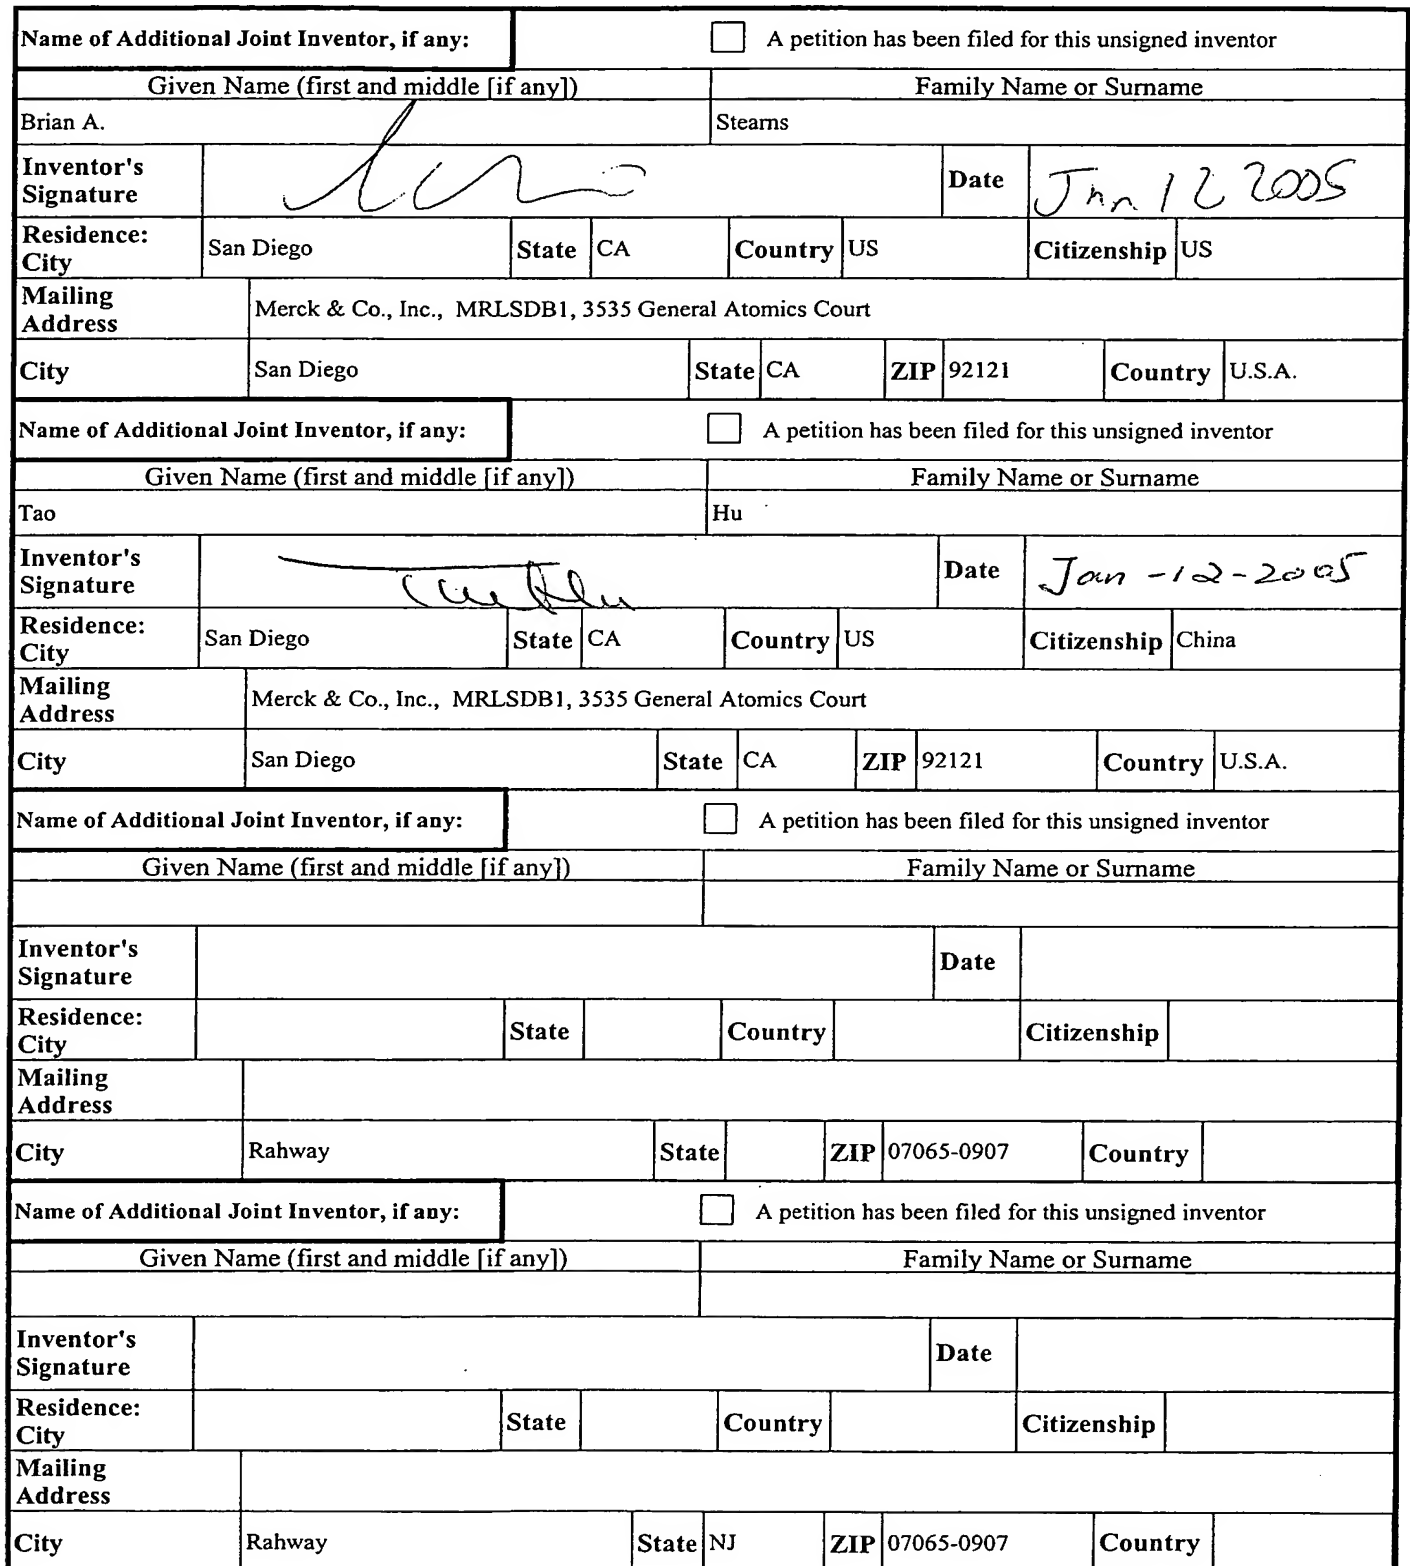 Name of Additional Joint Inventor, if any: A petition has been filed for this unsigned inventor
Given Name (first and middle [if any]) Family Name or Surname
Brian A. Stearns
Inventor's Signature Date Jan 12 2005
Residence: City San Diego State CA Country US Citizenship US
Mailing Address Merck & Co., Inc., MRLSDB1, 3535 General Atomics Court
City San Diego State CA ZIP 92121 Country U.S.A.
Name of Additional Joint Inventor, if any: A petition has been filed for this unsigned inventor
Given Name (first and middle [if any]) Family Name or Surname
Tao Hu
Inventor's Signature Tao Hu Date Jan-12-2005
Residence: City San Diego State CA Country US Citizenship China
Mailing Address Merck & Co., Inc., MRLSDB1, 3535 General Atomics Court
City San Diego State CA ZIP 92121 Country U.S.A.
Name of Additional Joint Inventor, if any: A petition has been filed for this unsigned inventor
Given Name (first and middle [if any]) Family Name or Surname
Inventor's Signature Date
Residence: City State Country Citizenship
Mailing Address
City Rahway State ZIP 07065-0907 Country
Name of Additional Joint Inventor, if any: A petition has been filed for this unsigned inventor
Given Name (first and middle [if any]) Family Name or Surname
Inventor's Signature Date
Residence: City State Country Citizenship
Mailing Address
City Rahway State NJ ZIP 07065-0907 Country